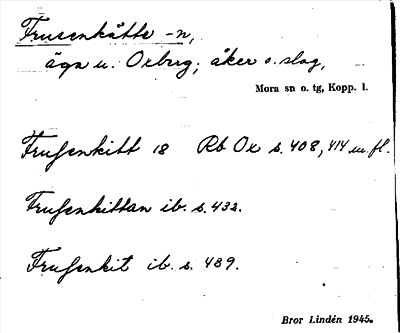 Frusenkåtte -n,
äga u. Oxberg; åker o. slog,
Mora sn o. tg, Kopp. l.
Frusenkitt 18 Rb Ox s. 408, 414 m. fl.
Frusenkittan ib. s. 432.
Frusenkit ib. s. 439.
Bror Lindén 1945.